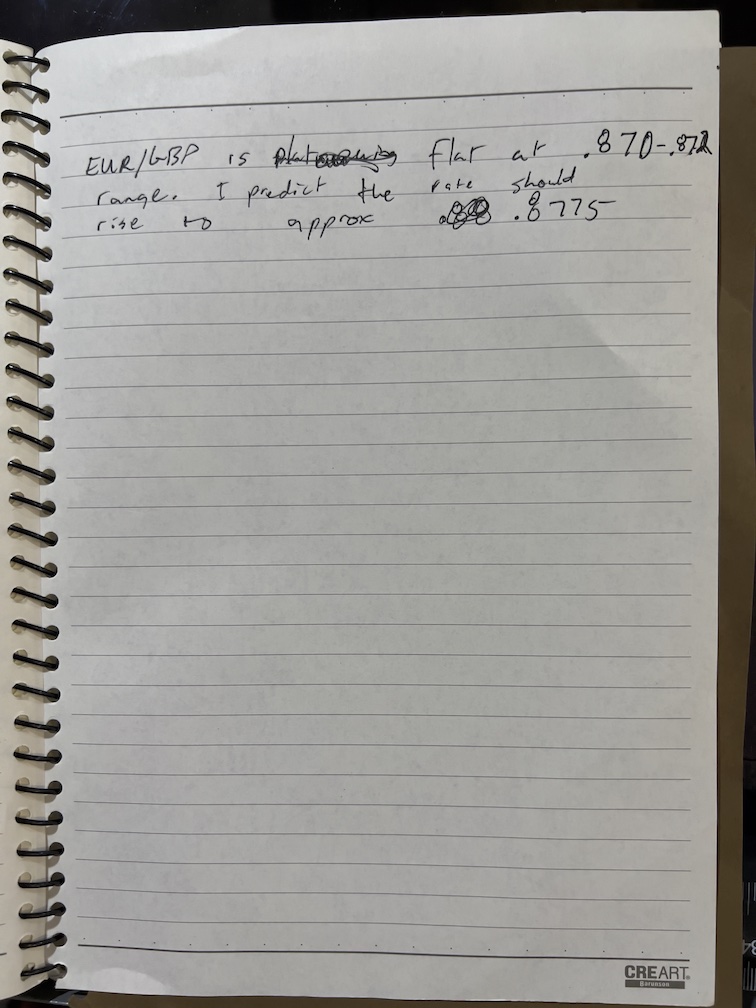 EUR/GBP is flat at .870-.872
range. I predict the rate should
rise to approx .8775
CREART
Baronson